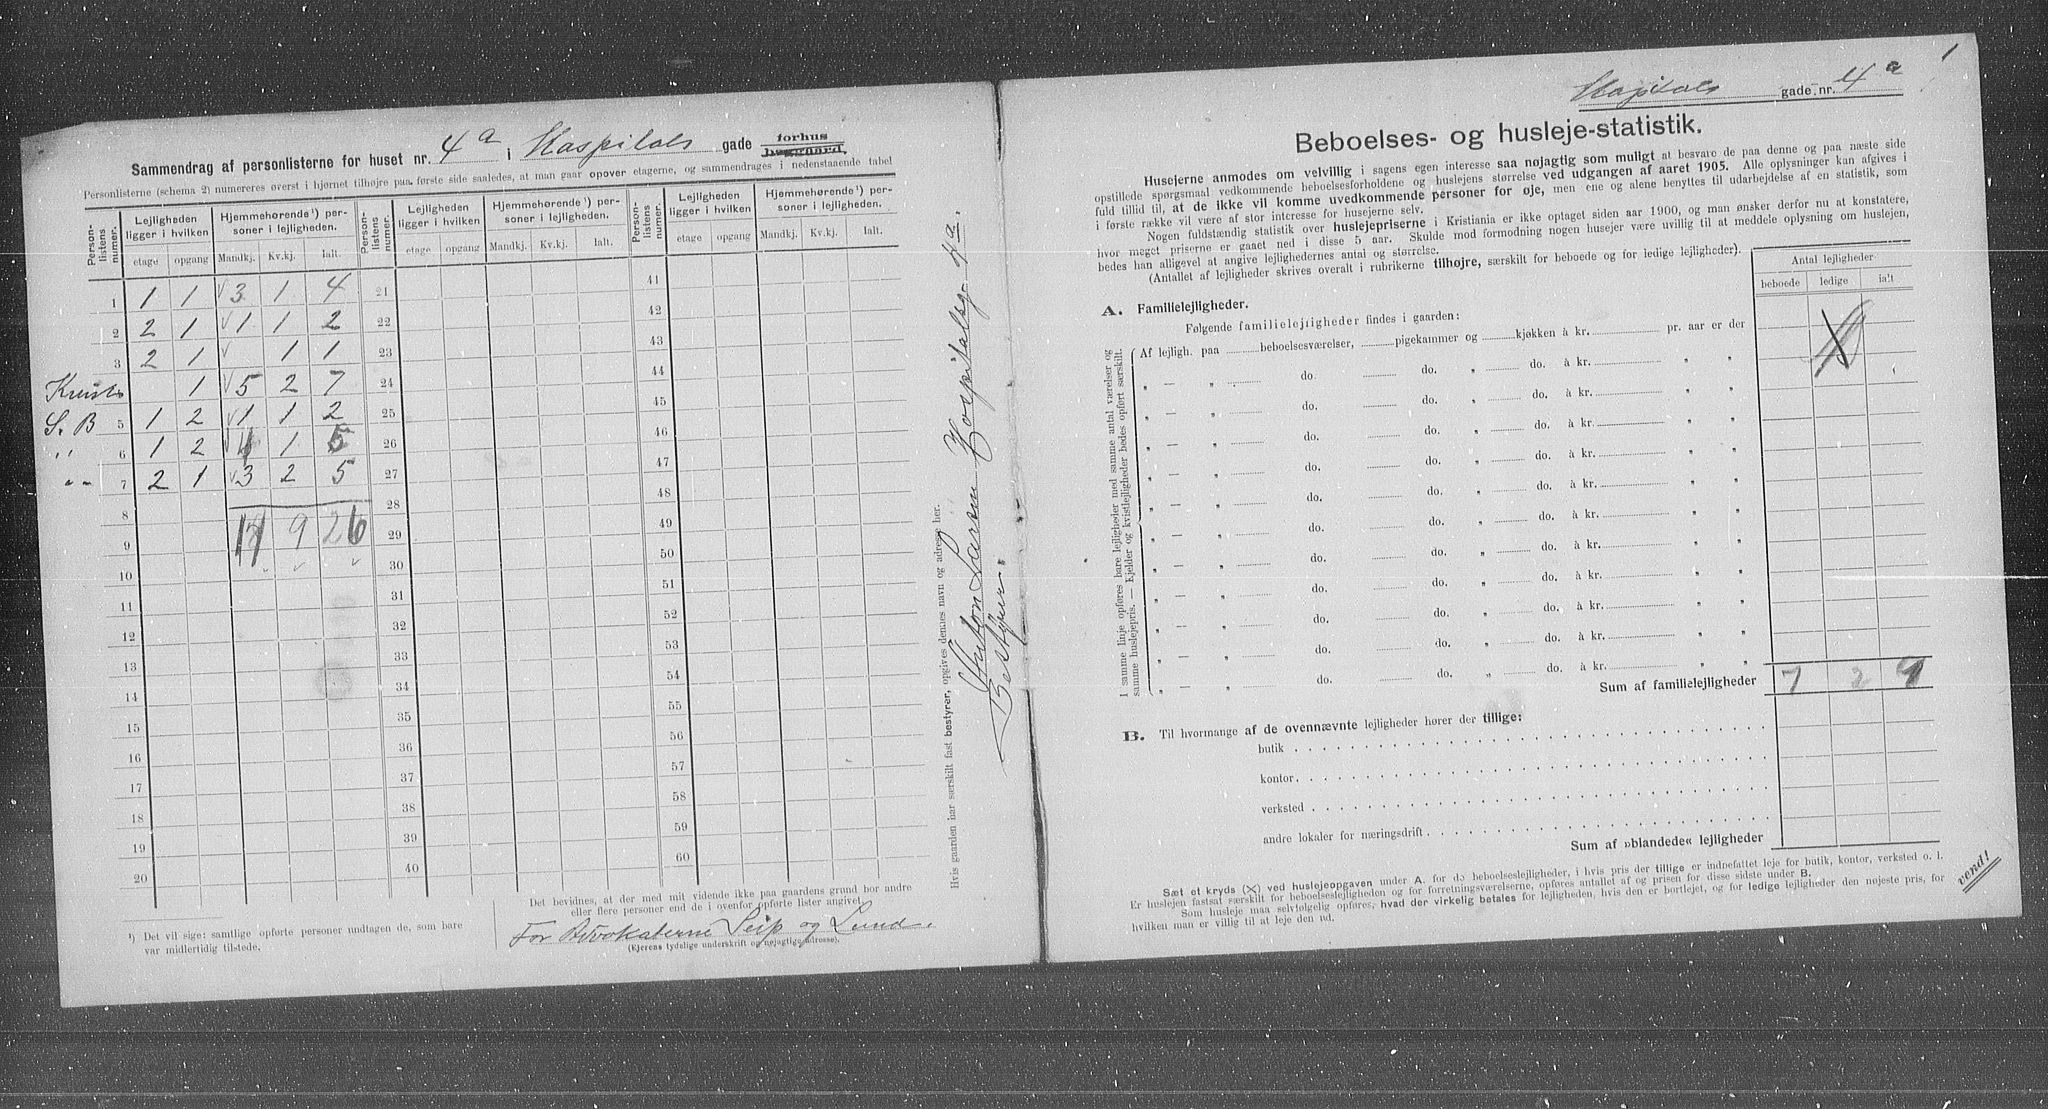 Sammendrag af personlisterne for huset nr. 4a i Haspitals gade forhus bakgaard.
Personlisterne (schema 2) numereres øverst i hjørnet tilhøjre paa første side saaledes, at man gaar opover etagerne, og sammendrages i nedenstaaende tabel
Person-listens numer. Lejligheden ligger i hvilken Hjemmehørende ¹) personer i lejligheden. Person-listens numer. Lejligheden ligger i hvilken Hjemmehørende ¹) personer i lejligheden. Person-listens numer. Lejligheden ligger i hvilken Hjemmehørende ¹) personer i lejligheden.
etage opgang Mandkj. Kv.kj. Ialt. etage opgang Mandkj. Kv.kj. Ialt. etage opgang Mandkj. Kv.kj. Ialt.
1 1 1 3 1 4 21 41
2 2 1 1 1 2 22 42
3 2 1 1 1 23 43
1 5 2 7 24 44
S. B 5 1 2 1 1 2 25 45
" 6 1 2 4 1 5 26 46
" 7 2 1 3 2 5 27 47
8 28 48
9 17 9 26 29 49
10 30 50
11 31 51
12 32 52
13 33 53
14 34 54
15 35 55
16 36 56
17 37 57
18 38 58
19 39 59
20 40 60
¹) Det vil sige: samtlige opførte personer undtagen de, som bare
var midlertidig tilstede.
Det bevidnes, at der med mit vidende ikke paa gaardens grund bor andre
eller flere personer end de i ovenfor opførte lister angivet.
For Advokaterne Seip og Lund.
(Ejerens tydelige underskrift og nøjagtige adresse).
Hvis gaarden har særskilt fast bestyrer, opgives dennes navn og adresse her.
Anton Larsen Hospitalsg. 4a.
Bestyrer.
Haspitals gade nr. 4a
1
Beboelses- og husleje-statistik.
Husejerne anmodes om velvillig i sagens egen interesse saa nøjagtig som muligt at besvare de paa denne og paa næste side
opstillede spørgsmaal vedkommende beboelsesforholdene og huslejens størrelse ved udgangen af aaret 1905. Alle oplysninger kan afgives i
fuld tillid til, at de ikke vil komme uvedkommende personer for øje, men ene og alene benyttes til udarbejdelse af en statistik, som
i første række vil være af stor interesse for husejerne selv.
Nogen fuldstændig statistik over huslejepriserne i Kristiania er ikke optaget siden aar 1900, og man ønsker derfor nu at konstatere,
hvor meget priserne er gaaet ned i disse 5 aar. Skulde mod formodning nogen husejer være uvillig til at meddele oplysning om huslejen,
bedes han alligevel at angive lejlighedernes antal og størrelse.
(Antallet af lejligheder skrives overalt i rubrikerne tilhøjre, særskilt for beboede og for ledige lejligheder).
Antal lejligheder
beboede ledige ialt
A. Familielejligheder.
Følgende familielejligheder findes i gaarden:
I samme linje opføres bare lejligheder med samme antal værelser og
samme huslejepris. — Kjelder og kvistlejligheder bedes opført særskilt.
Af lejligh. paa beboelsesværelser, pigekammer og kjøkken à kr. pr. aar er der
" — " do. do. " do. à kr. " "
" — " do. do. " do. à kr. " "
" — " do. do. " do. à kr. " "
" — " do. do. " do. à kr. " "
" — " do. do. " do. à kr. " "
" — " do. do. " do. à kr. " "
" — " do. do. " do. à kr. " "
" — " do. do. " do. à kr. " "
" — " do. do. " do. à kr. " "
" — " do. do. " do. à kr. " "
" — " do. do. " do. à kr. " "
Sum af familielejligheder 7 2 9
B. Til hvormange af de ovennævnte lejligheder hører der tillige:
butik
kontor
verksted
andre lokaler for næringsdrift
Sum af »blandede« lejligheder
Sæt et kryds (X) ved huslejeopgaven under A. for de beboelseslejligheder, i hvis pris der tillige er indbefattet leje for butik, kontor, verksted o. l.
Er huslejen fastsat særskilt for beboelseslejligheden og for forretningsværelserne, opføres antallet af og prisen for disse sidste under B.
Som husleje maa selvfølgelig opføres, hvad der virkelig betales for lejligheden, hvis den er bortlejet, og for ledige lejligheder den nøjeste pris, for
hvilken man er villig til at leje den ud.
vend!